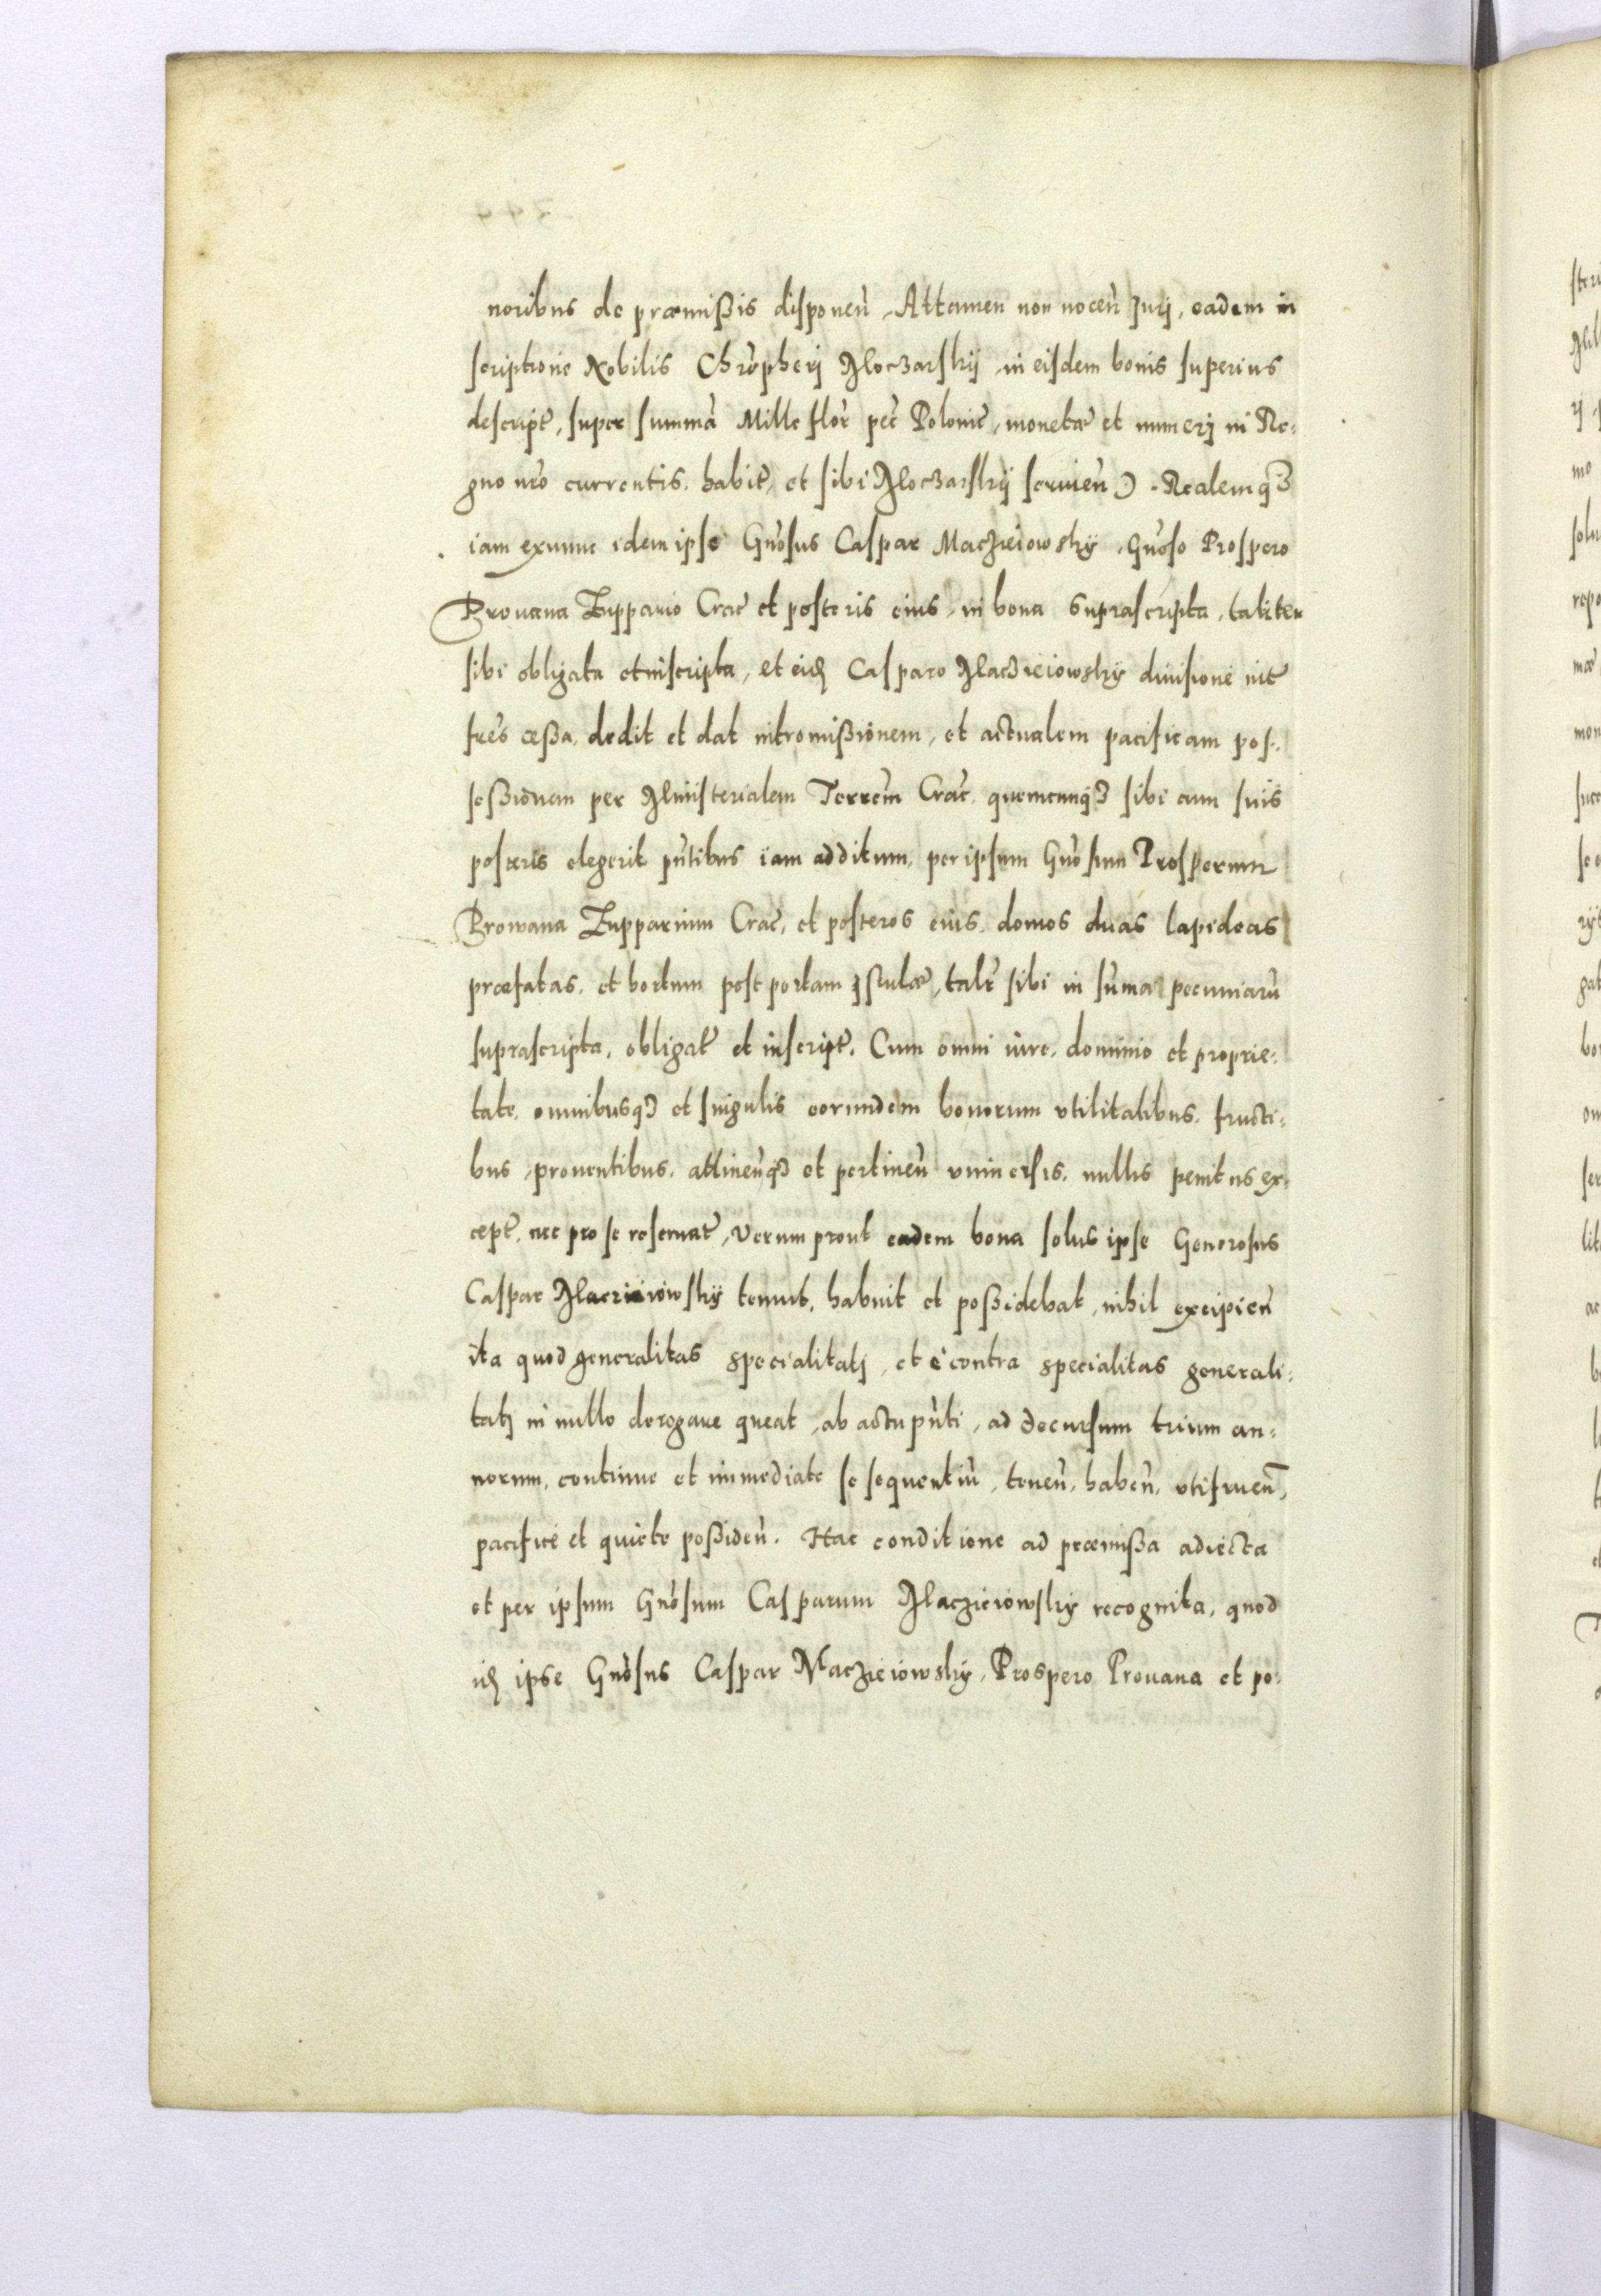 noribus de præmißis disponeñ, Attamen non noceñ Jurj, eadem in
scriptione Nobilis Chr̃opherj Moczarskij, in eisdem bonis superius
descript̃, super summã Mille flor̃ pec̃ Polonic̃, monetæ et numerj in Re¬
gno nr̃o currentis, habit̃, et sibi Moczarskij seruieñ). Realemq3
iam exnunc idem ipse Gñosus Caspar Macżieiowskÿ, Gñoso Prospero
Prouana Zuppario Crac̃ et posteris eius, in bona suprascripta, taliter
sibi obligata et inscripta, et eid̃ Casparo Maczieiowskÿ diuisione int̃
fr̃es cæßa, dedit et dat intromißionem, et actualem pacificam pos¬
seßionem per Ministerialem Terreñ Crac̃, quemcunq3 sibi cum suis
posteris elegerit pñtibus iam additum, per ipsum Gñosum Prosperum
Prowana Zupparium Crac̃, et posteros eius, domos duas lapideas
præfatas, et hortum post portam Jstulæ, talr̃ sibi in sum̃a pecuniarũ
suprascripta, obligat̃ et inscript̃, Cum omni iure, dominio et proprie¬
tate, omnibusq3 et singulis eorundem bonorum vtilitatibus, fructi¬
bus, prouentibus, attineñq3 et pertineñ vniuersis, nullis penitus ex¬
cept̃, nec pro se reseruat̃, Verum prout eadem bona solus ipse Generosus
Caspar Maczieiowskÿ tenuit, habuit et poßidebat, nihil excipieñ
ita quod generalitas specialitatj, et e contra specialitas generali¬
tatj in nullo derogare queat, ab actu pñti, ad decursum trium an¬
norum, continue et immediate se sequentiũ, teneñ, habeñ, vtifrueñ,
pacifice et quiete poßideñ. Hac conditione ad præmißa adiecta
et per ipsum Gñosum Casparum Maczieiowskÿ recognita, quod
id̃ ipse Gñosus Caspar Maczieiowskÿ, Prospero Prouana et po¬